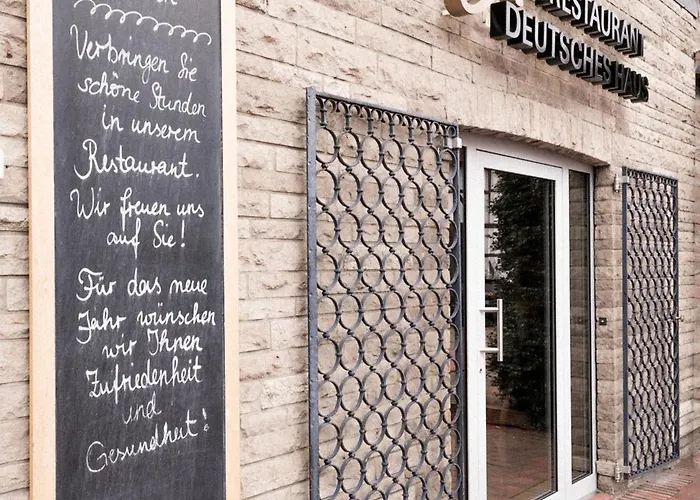 Verbringen Sie
schöne Stunden
in unserem
Restaurant.
Wir freuen uns
auf Sie!
Für das neue
Jahr wünschen
wir Ihnen
Zufriedenheit
und
Gesundheit!
RESTAURANT
DEUTSCHES HAUS